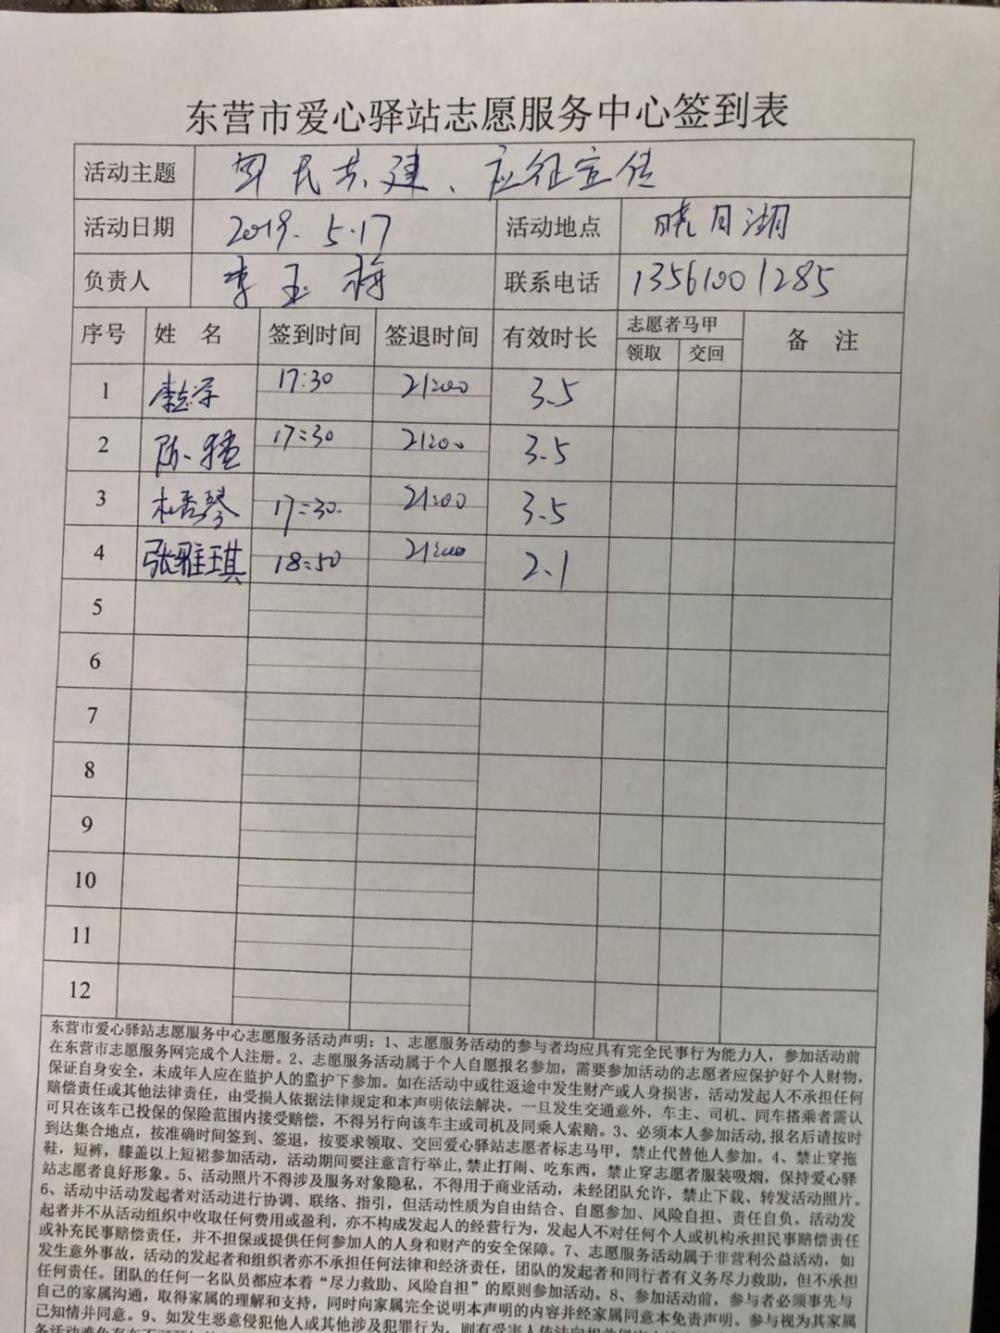 东营市爱心驿站志愿服务中心签到表
活动主题 军民共建、应征宣传
活动日期 2019. 5.17 活动地点 晓月湖
负责人 李玉梅 联系电话 13561001285
序号 姓 名 签到时间 签退时间 有效时长 志愿者马甲 备 注
领取 交回
1 17:30 21:00 3.5
2 陈 17:30 21:00 3.5
3 杜秀琴 17:30 21:00 3.5
4 张雅琪 18:50 21:00 2.1
5
6
7
8
9
10
11
12
东营市爱心驿站志愿服务中心志愿服务活动声明：1、志愿服务活动的参与者均应具有完全民事行为能力人，参加活动前
在东营市志愿服务网完成个人注册。2、志愿服务活动属于个人自愿报名参加，需要参加活动的志愿者应保护好个人财物，
保证自身安全，未成年人应在监护人的监护下参加。如在活动中或往返途中发生财产或人身损害，活动发起人不承担任何
赔偿责任或其他法律责任，由受损人依据法律规定和本声明依法解决。一旦发生交通意外，车主、司机、同车搭乘者需认
可只在该车已投保的保险范围内接受赔偿，不得另行向该车主或司机及同乘人索赔。3、必须本人参加活动,报名后请按时
到达集合地点，按准确时间签到、签退，按要求领取、交回爱心驿站志愿者标志马甲，禁止代替他人参加。4、禁止穿拖
鞋，短裤，膝盖以上短裙参加活动，活动期间要注意言行举止,禁止打闹、吃东西，禁止穿志愿者服装吸烟，保持爱心驿
站志愿者良好形象。5、活动照片不得涉及服务对象隐私，不得用于商业活动，未经团队允许，禁止下载、转发活动照片。
6、活动中活动发起者对活动进行协调、联络、指引，但活动性质为自由结合、自愿参加、风险自担、责任自负。活动发
起者并不从活动组织中收取任何费用或盈利，亦不构成发起人的经营行为，发起人不对任何个人或机构承担民事赔偿责任
或补充民事赔偿责任，并不担保或提供任何参加人的人身和财产的安全保障。7、志愿服务活动属于非营利公益活动，如
发生意外事故，活动的发起者和组织者亦不承担任何法律和经济责任，团队的发起者和同行者有义务尽力救助，但不承担
任何责任。团队的任何一名队员都应本着“尽力救助、风险自担”的原则参加活动。8、参加活动前，参与者必须事先与
自己的家属沟通，取得家属的理解和支持，同时向家属完全说明本声明的内容并经家属同意本免责声明。参与视为其家属
已知情并同意。9、如发生恶意侵犯他人或其他涉及犯罪行为，则有受害人依法